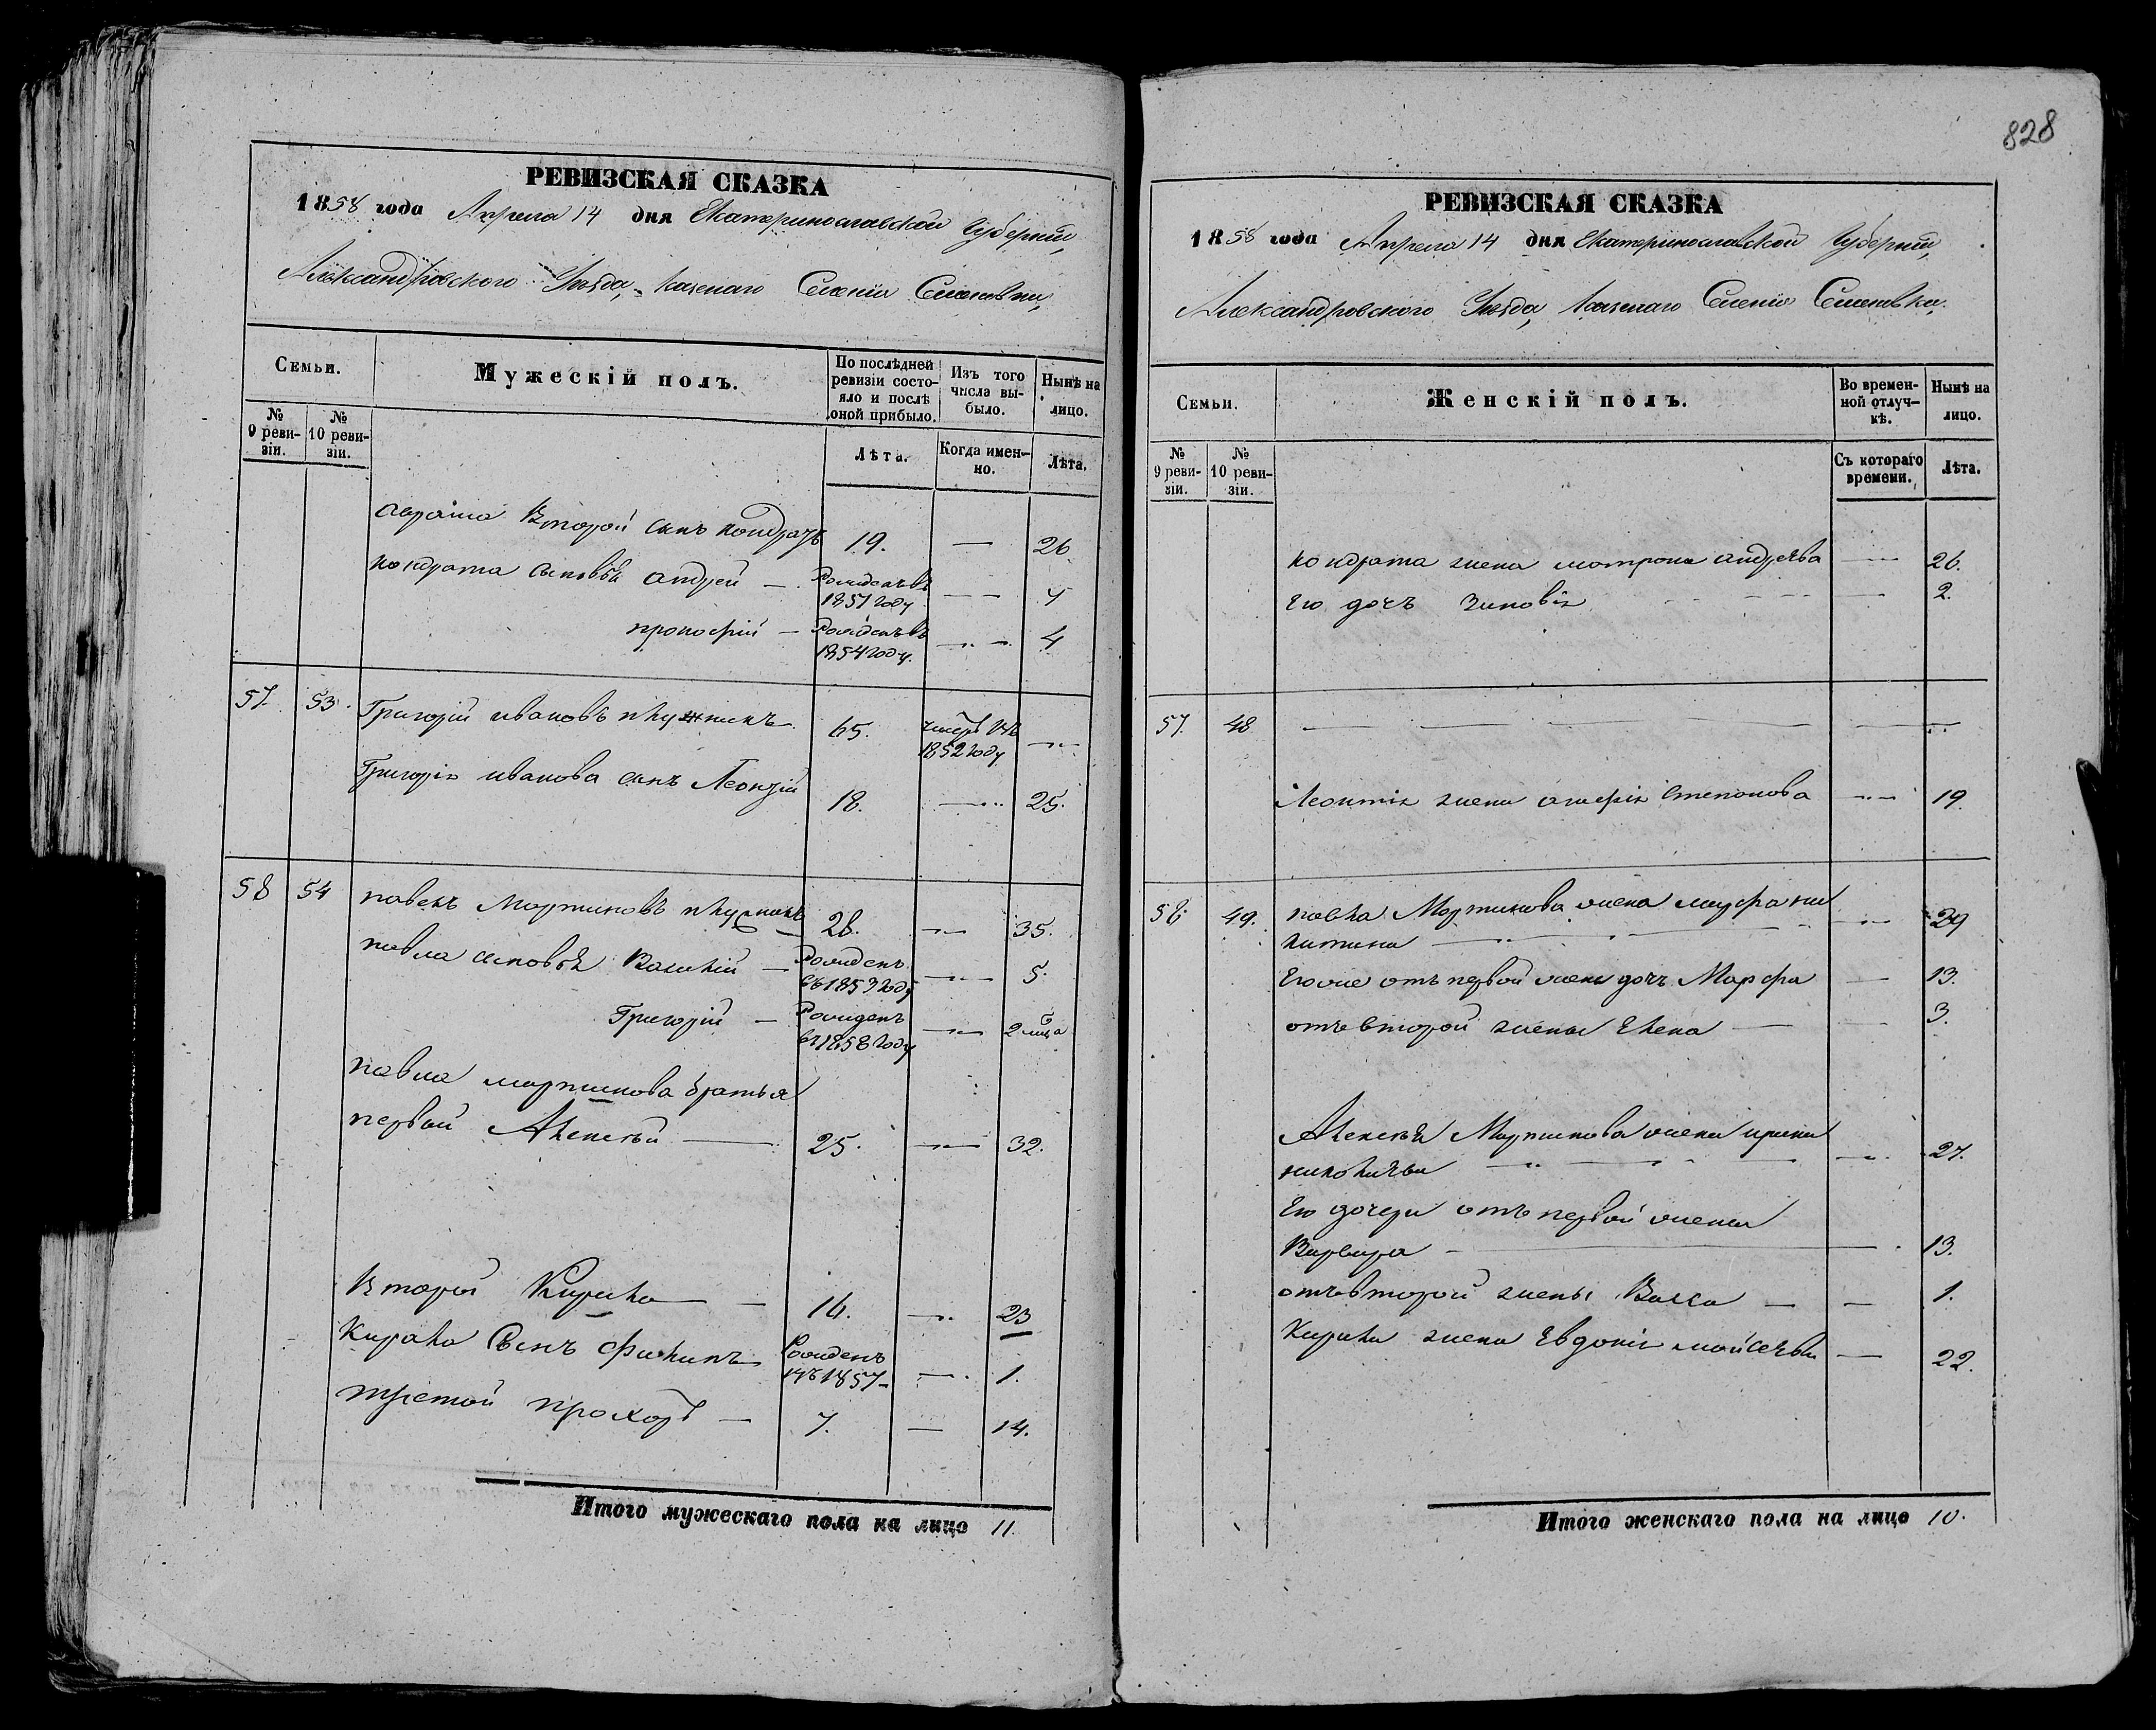 828
РЕВИЗСКАЯ СКАЗКА
1858 года Апреля 14 дня Екатеринославской Губерніи,
Александровского Уѣзда, казенаго Селенія Семеновки,
Семьи.
Мужескій полъ.
По послѣдней ревизіи состояло и послѣ оной прибыло.
Изъ того числа выбыло.
Нынѣ на лицо.
№ 9 ревизіи.
№ 10 ревизіи.
Лѣта.
Когда именно.
Лѣта.
второй сынъ Кондратъ 19. — 26
Кондрата сыновья андрей — Рожденъ въ 1851 году — 7
прокофій — Рожденъ въ 1854 году. — 4
57. 53. Григорій ивановъ 65. 1852 году —
Григорія иванова сынъ Леонтій 18. — 25.
58 54 павелъ Мартиновъ 28. — 35.
павла сыновья Василій — Рожденъ въ 1853 году — 5.
Григорій — Рожденъ въ 1858 году — 2 мца
павла мартинова братья
первой Алексей — 25. — 32.
Второй Кирило — 16. — 23
Кирила Сынъ Филипъ Рожденъ 1857 — 1.
третой прохоръ — 7. — 14.
Итого мужескаго пола на лицо 11.
РЕВИЗСКАЯ СКАЗКА
1858 года Апреля 14 дня Екатеринославской Губерніи,
Александровского Уѣзда, Казенаго Селенія Семеновки,
Семьи.
Женскій полъ.
Во временной отлучкѣ.
Нынѣ на лицо.
№ 9 ревизіи.
№ 10 ревизіи.
Съ котораго времени.
Лѣта.
Кондрата жена мотрона андреева — 26.
Его дочь Зиновія — 2.
57. 48 —
Леонтія жена агафія Степанова — 19.
58. 49. павла Мартинова жена
— 29
Егоже отъ первой жены дочь Марфа — 13.
отъ второй жены Елена — 3.
Алексея Мартинова жена ирина
— 27.
Его дочери отъ первой жены
Варвара — 13.
отъ второй жены Васса — 1.
Кирила жена Евдокія мойсеева — 22.
Итого женскаго пола на лицо 10.